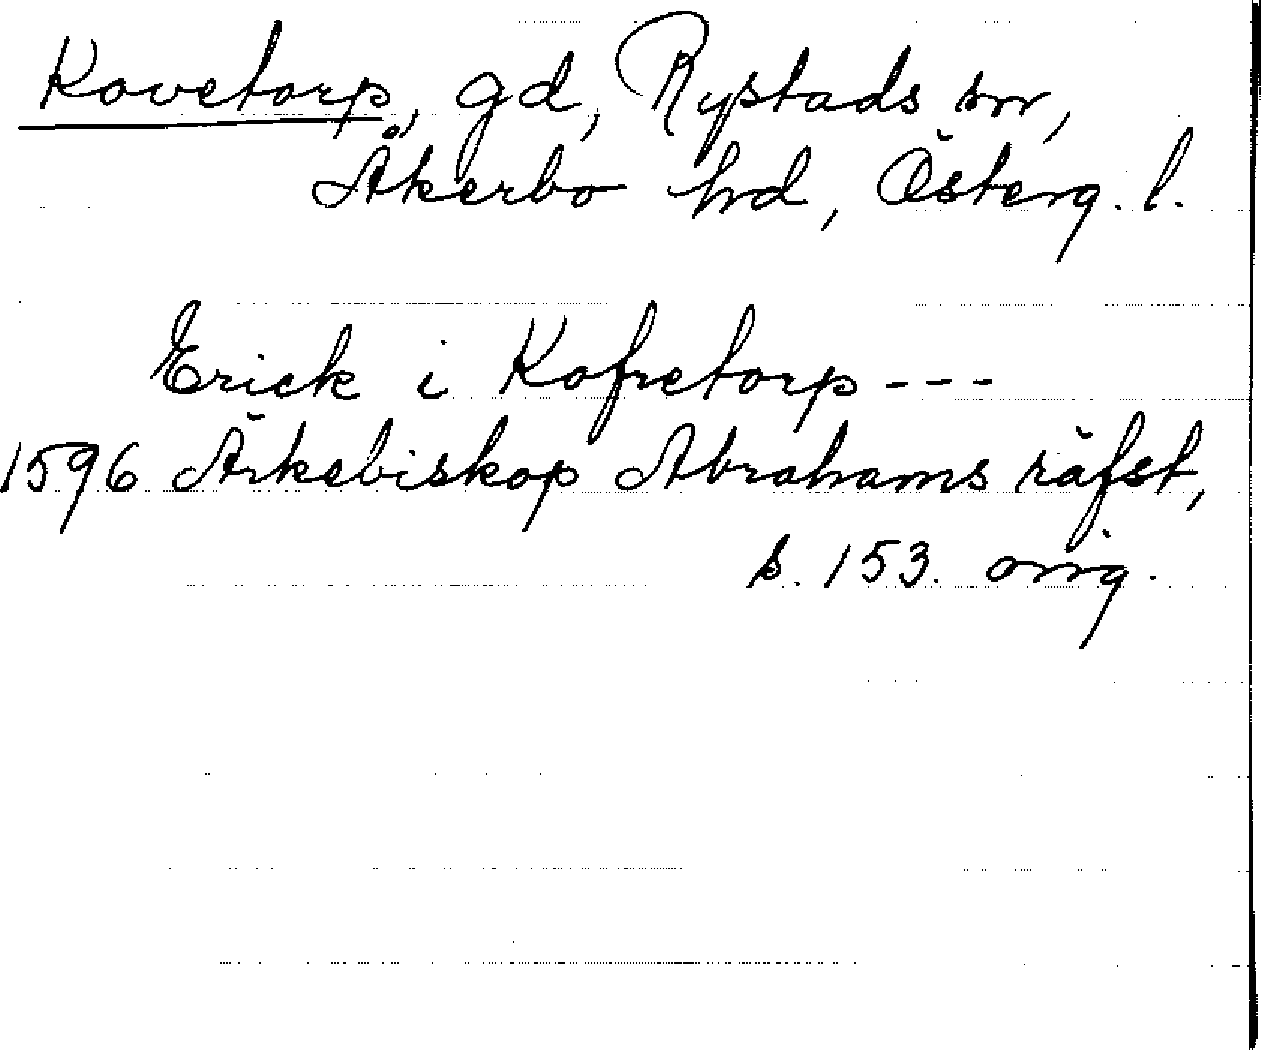 Kovetorp, gd, Rystads sn,
Åkerbo hd, Österg. l.
Erick i Kofretorp ---
1596 Ärkebiskop Abrahams räfst,
s. 153. orig.